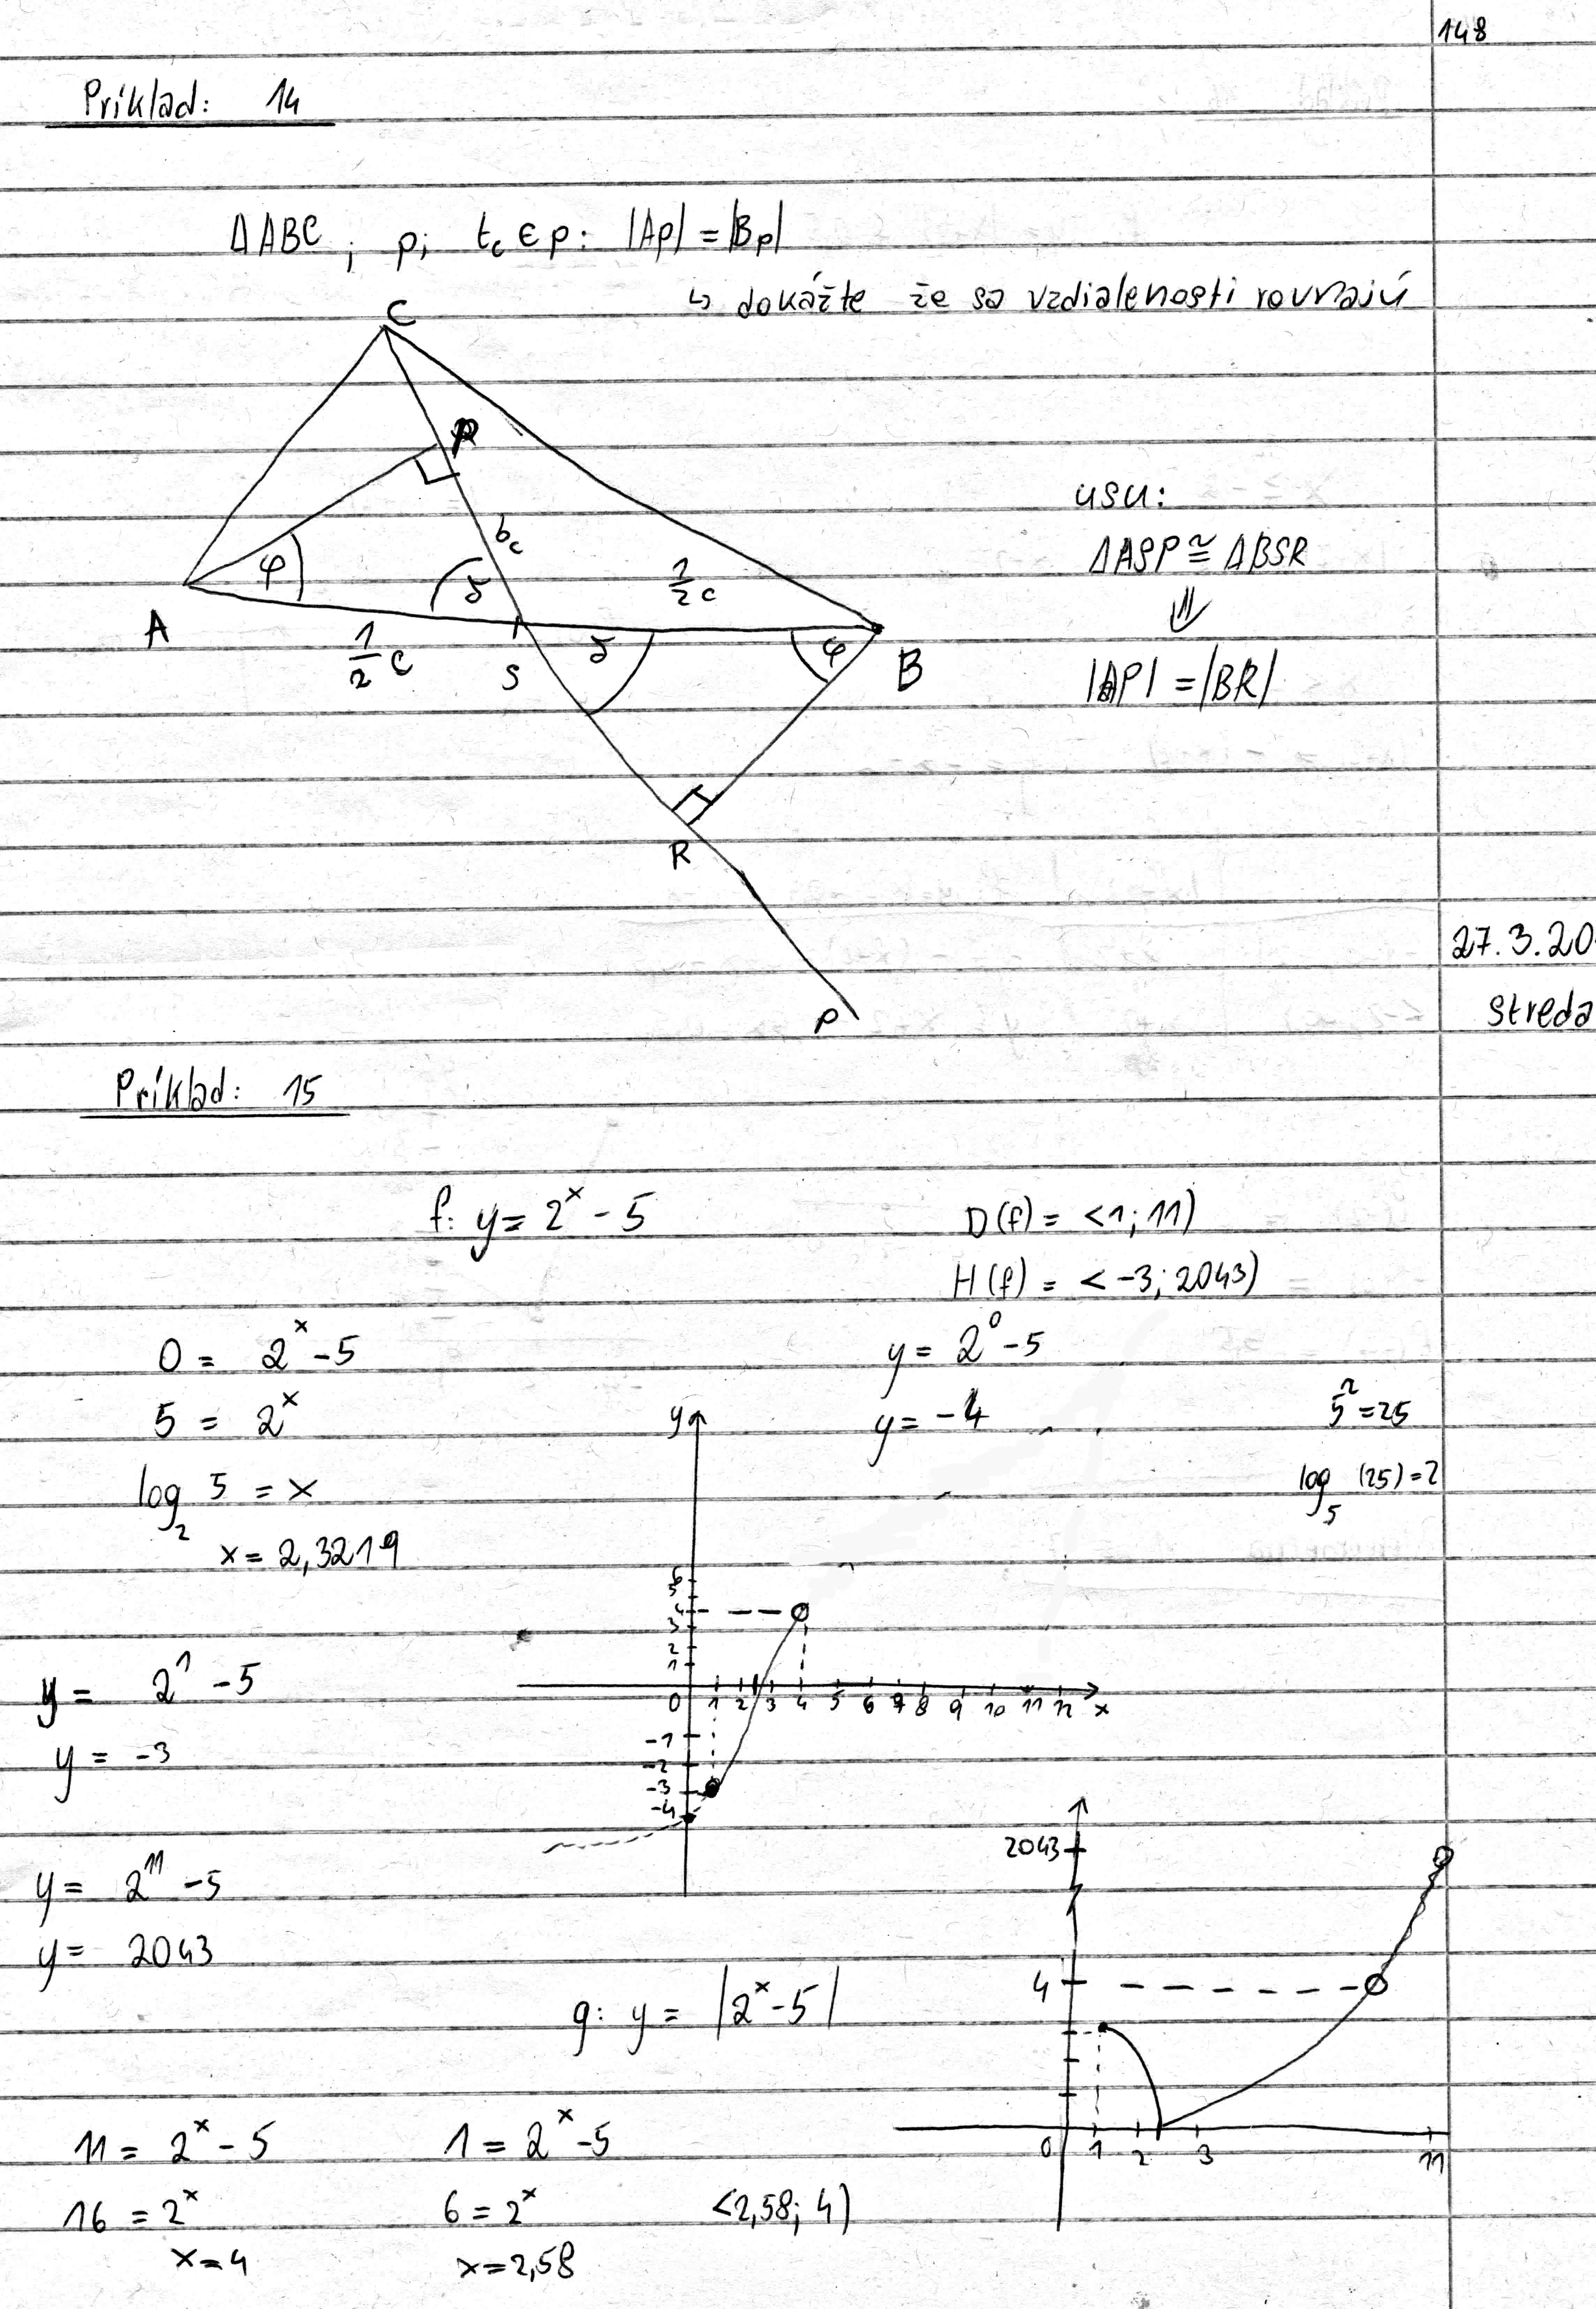 148
Príklad: 14
ΔABC ; p; t_c ∈ p: |Ap| = |Bp|
↳ dokážte že sa vzdialenosti rovnajú
C
P
b_c
φ
δ
1/2 c
A
1/2 c
S
δ
φ
B
R
p
usu:
ΔASP ≅ ΔBSR
⇓
|AP| = |BR|
27.3.20
streda
Príklad: 15
f: y = 2^x - 5
D(f) = <1; 11)
H(f) = <-3; 2043)
0 = 2^x - 5
y = 2^0 - 5
5 = 2^x
y = -4
5^2 = 25
log_2 5 = x
log_5 (25) = 2
x = 2,3219
y
6
5
4
3
2
1
0 1 2 3 4 5 6 7 8 9 10 11 12 x
-1
-2
-3
-4
y = 2^1 - 5
y = -3
y = 2^11 - 5
y = 2043
g: y = |2^x - 5|
2043
4
0 1 2 3 11
11 = 2^x - 5
16 = 2^x
x = 4
1 = 2^x - 5
6 = 2^x
x = 2,58
<2,58; 4)